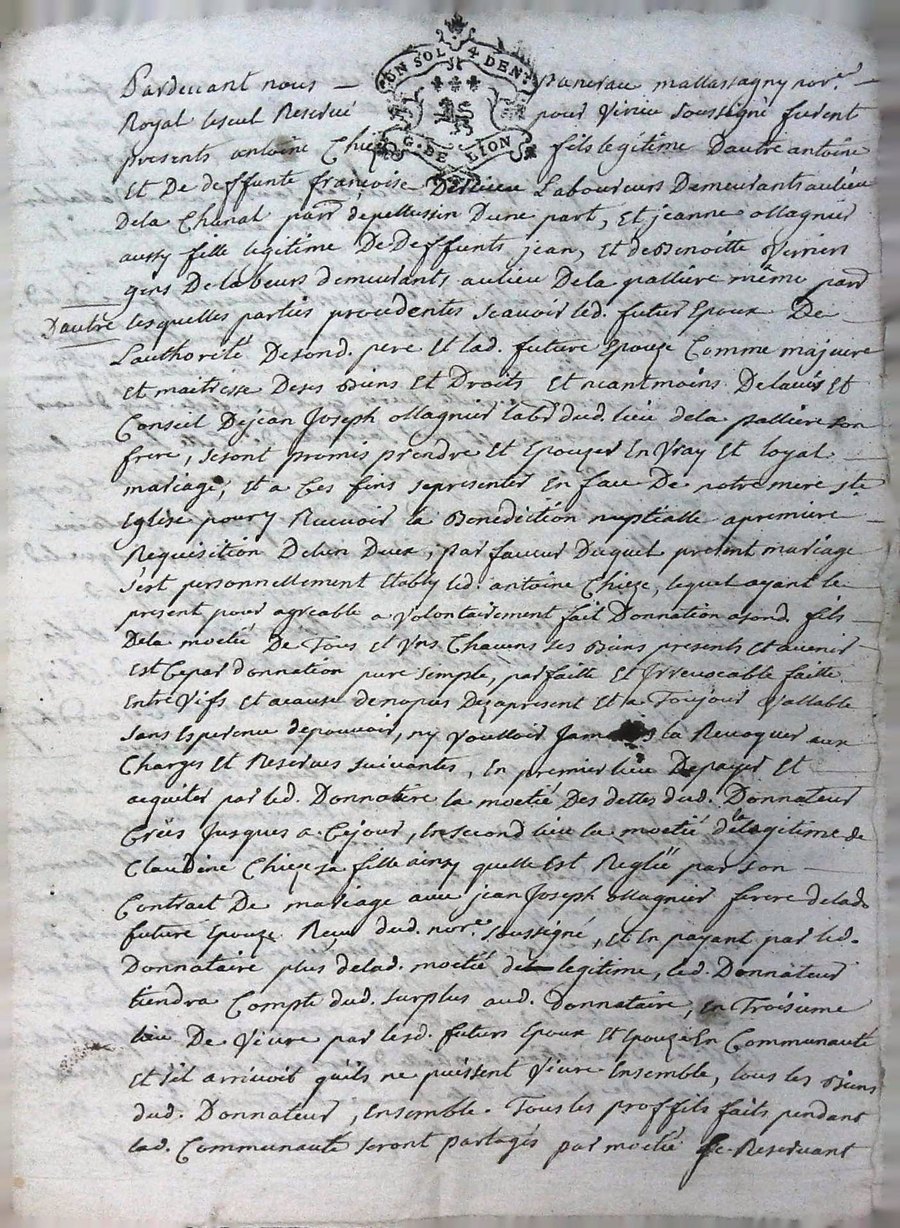 ON SOL 4 DEN
G. DE LION
Pardevant nous — mallassagny nor.e —
Royal lescul Reservé pour Virieu soussigné furent
presents antoine Chieze fils legitime Dautre antoine
Et De deffunte françoise Laboureurs Demeurants aulieu
Dela Chanal parr depellussin Dune part, Et jeanne ollagnier
aussy fille legitime De Deffunts jean, Et de Benoitte Verrier
gens De labeurs demeurants aulieu Dela palliere même parr
Dautre lesquelles parties proceddentes scavoir led. futur Epoux De
Lauthorité Desond. pere Et lad. future Epouze Comme majeure
Et maitresse Deses Biens Et Droits Et neantmoins Delavis Et
Conseil Dejean Joseph ollagnier labr dud. lieu dela palliere son
frere, sesont promis prendre Et Epouzer En Vray Et loyal
mariage, Et a Ces fins sepresenter En face De notre mere ste
Eglise poury Recevoir la Benediction nuptialle apremiere
Requisition Delun Deux, par faveur Duquel present mariage
s'est personnellement Etably led. antoine Chieze, lequel ayant le
present pour agreable a volontairement fait Donnation asond. fils
Dela moetié De Tous Et Uns Chacuns ses Biens presents Et avenir
Est Ce par donnation pure simple, parfaitte Et Irrevocable faitte
Entre Vifs Et acause denopces Dezapresent Et a Toujour Vallable
sans Esperence depouvoir, ny Voulloir Jamais la Revoquer aux
Charges Et Reserves suivantes, En premier lieu De payer Et
aquiter par led. Donnatere la moetié Des dettes dud. Donnateur
Créés Jusques a Cejour, En second lieu la moetié de la legitime de
Claudine Chieze sa fille ainsy quelle Est Reglée par son
Contrait De mariage avec jean Joseph ollagnier frere delad.
future Epouze Receu dud. nor.e soussigné, Et En payant par led.
Donnataire plus delad. moetié de legitime, led. Donnateur
tiendra Compte dud. surplus aud. Donnataire, En Troisieme
lieu De Vivre par lesd. futurs Epoux Et Epouze En Communauté
Et s'il arrivoit quils ne puissent Vivre Ensemble, tous les Biens
dud. Donnateur, Ensemble Tous les proffits faits pendant
lad. Communauté seront partagés par moetié se Reservant